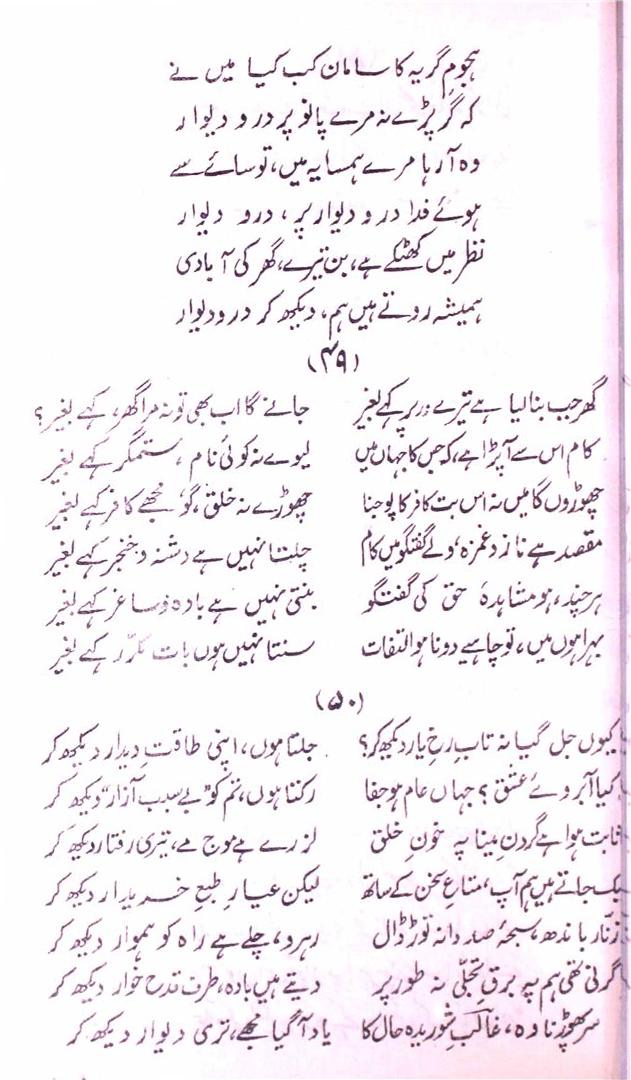 ہجومِ گریہ کا سامان کب کیا میں نے
کہ گر پڑے نہ مرے پانو پر در و دیوار
وہ آ رہا مرے ہمسایہ میں، تو سائے سے
ہوئے فدا در و دیوار پر، در و دیوار
نظر میں کھٹکے ہے، بن تیرے، گھر کی آبادی
ہمیشہ روتے ہیں ہم، دیکھ کر در و دیوار
(۴۹)
گھر جب بنا لیا ہے ترے در پر کہے بغیر جانے گا اب بھی تو نہ مرا گھر، کہے بغیر؟
کام اس سے آ پڑا ہے، کہ جس کا جہاں میں لیوے نہ کوئی نام، ستمگر کہے بغیر
چھوڑوں گا میں نہ اس بت کافر کا پوجنا چھوڑے نہ خلق، گو مجھے کافر کہے بغیر
مقصد ہے ناز و غمزہ، ولے گفتگو میں کام چلتا نہیں ہے دشنہ و خنجر کہے بغیر
ہر چند، ہو مشاہدۂ حق کی گفتگو بنتی نہیں ہے بادہ و ساغر کہے بغیر
بہرا ہوں میں، تو چاہیے دونا ہو التفات سنتا نہیں ہوں بات مکرّر کہے بغیر
(۵۰)
کیوں جل گیا نہ تابِ رخِ یار دیکھ کر؟ جلتا ہوں، اپنی طاقتِ دیدار دیکھ کر
کیا آبروئے عشق؟ جہاں عام ہو جفا رکتا ہوں، تم کو "بے سبب آزار" دیکھ کر
ثابت ہوا ہے گردنِ مینا پہ خونِ خلق لرزے ہے موجِ مے، تیری رفتار دیکھ کر
بک جاتے ہیں ہم آپ، متاعِ سخن کے ساتھ لیکن عیارِ طبعِ خریدار دیکھ کر
زنّار باندھ، سبحۂ صد دانہ توڑ ڈال رہرو، چلے ہے راہ کو ہموار دیکھ کر
گرنی تھی ہم پہ برقِ تجلّی نہ طور پر دیتے ہیں بادہ، ظرفِ قدح خوار دیکھ کر
سر پھوڑنا وہ، غالبِ شوریدہ حال کا یاد آ گیا مجھے، تری دیوار دیکھ کر